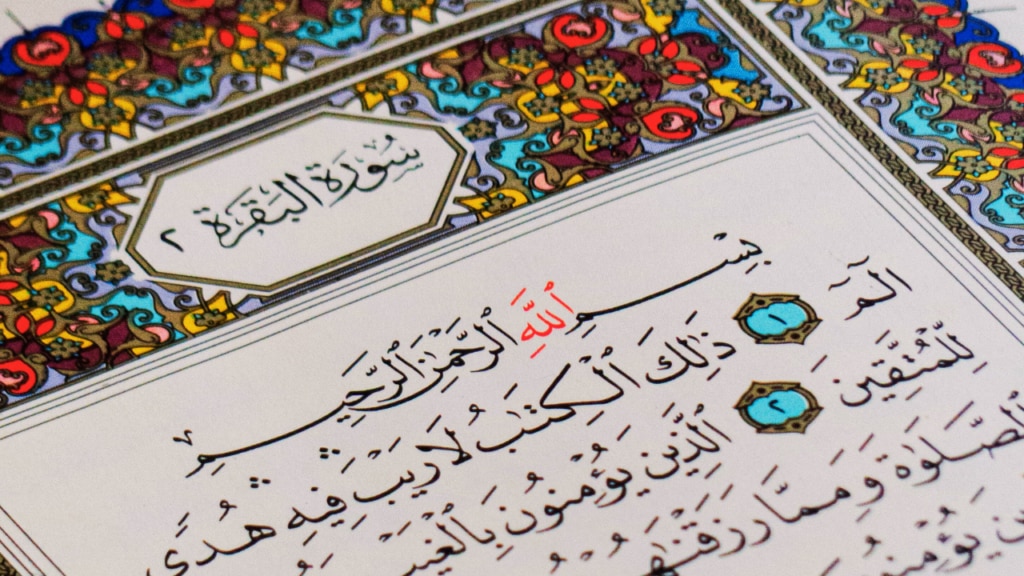 سُورَةُ البَقَرَةِ ٢
بِسْمِ ٱللَّهِ ٱلرَّحْمَٰنِ ٱلرَّحِيمِ
الٓمٓ ١ ذَٰلِكَ ٱلْكِتَٰبُ لَا رَيْبَ ۛ فِيهِ ۛ هُدًى
لِّلْمُتَّقِينَ ٢ ٱلَّذِينَ يُؤْمِنُونَ بِٱلْغَيْبِ
ٱلصَّلَوٰةَ وَمِمَّا رَزَقْنَٰهُمْ